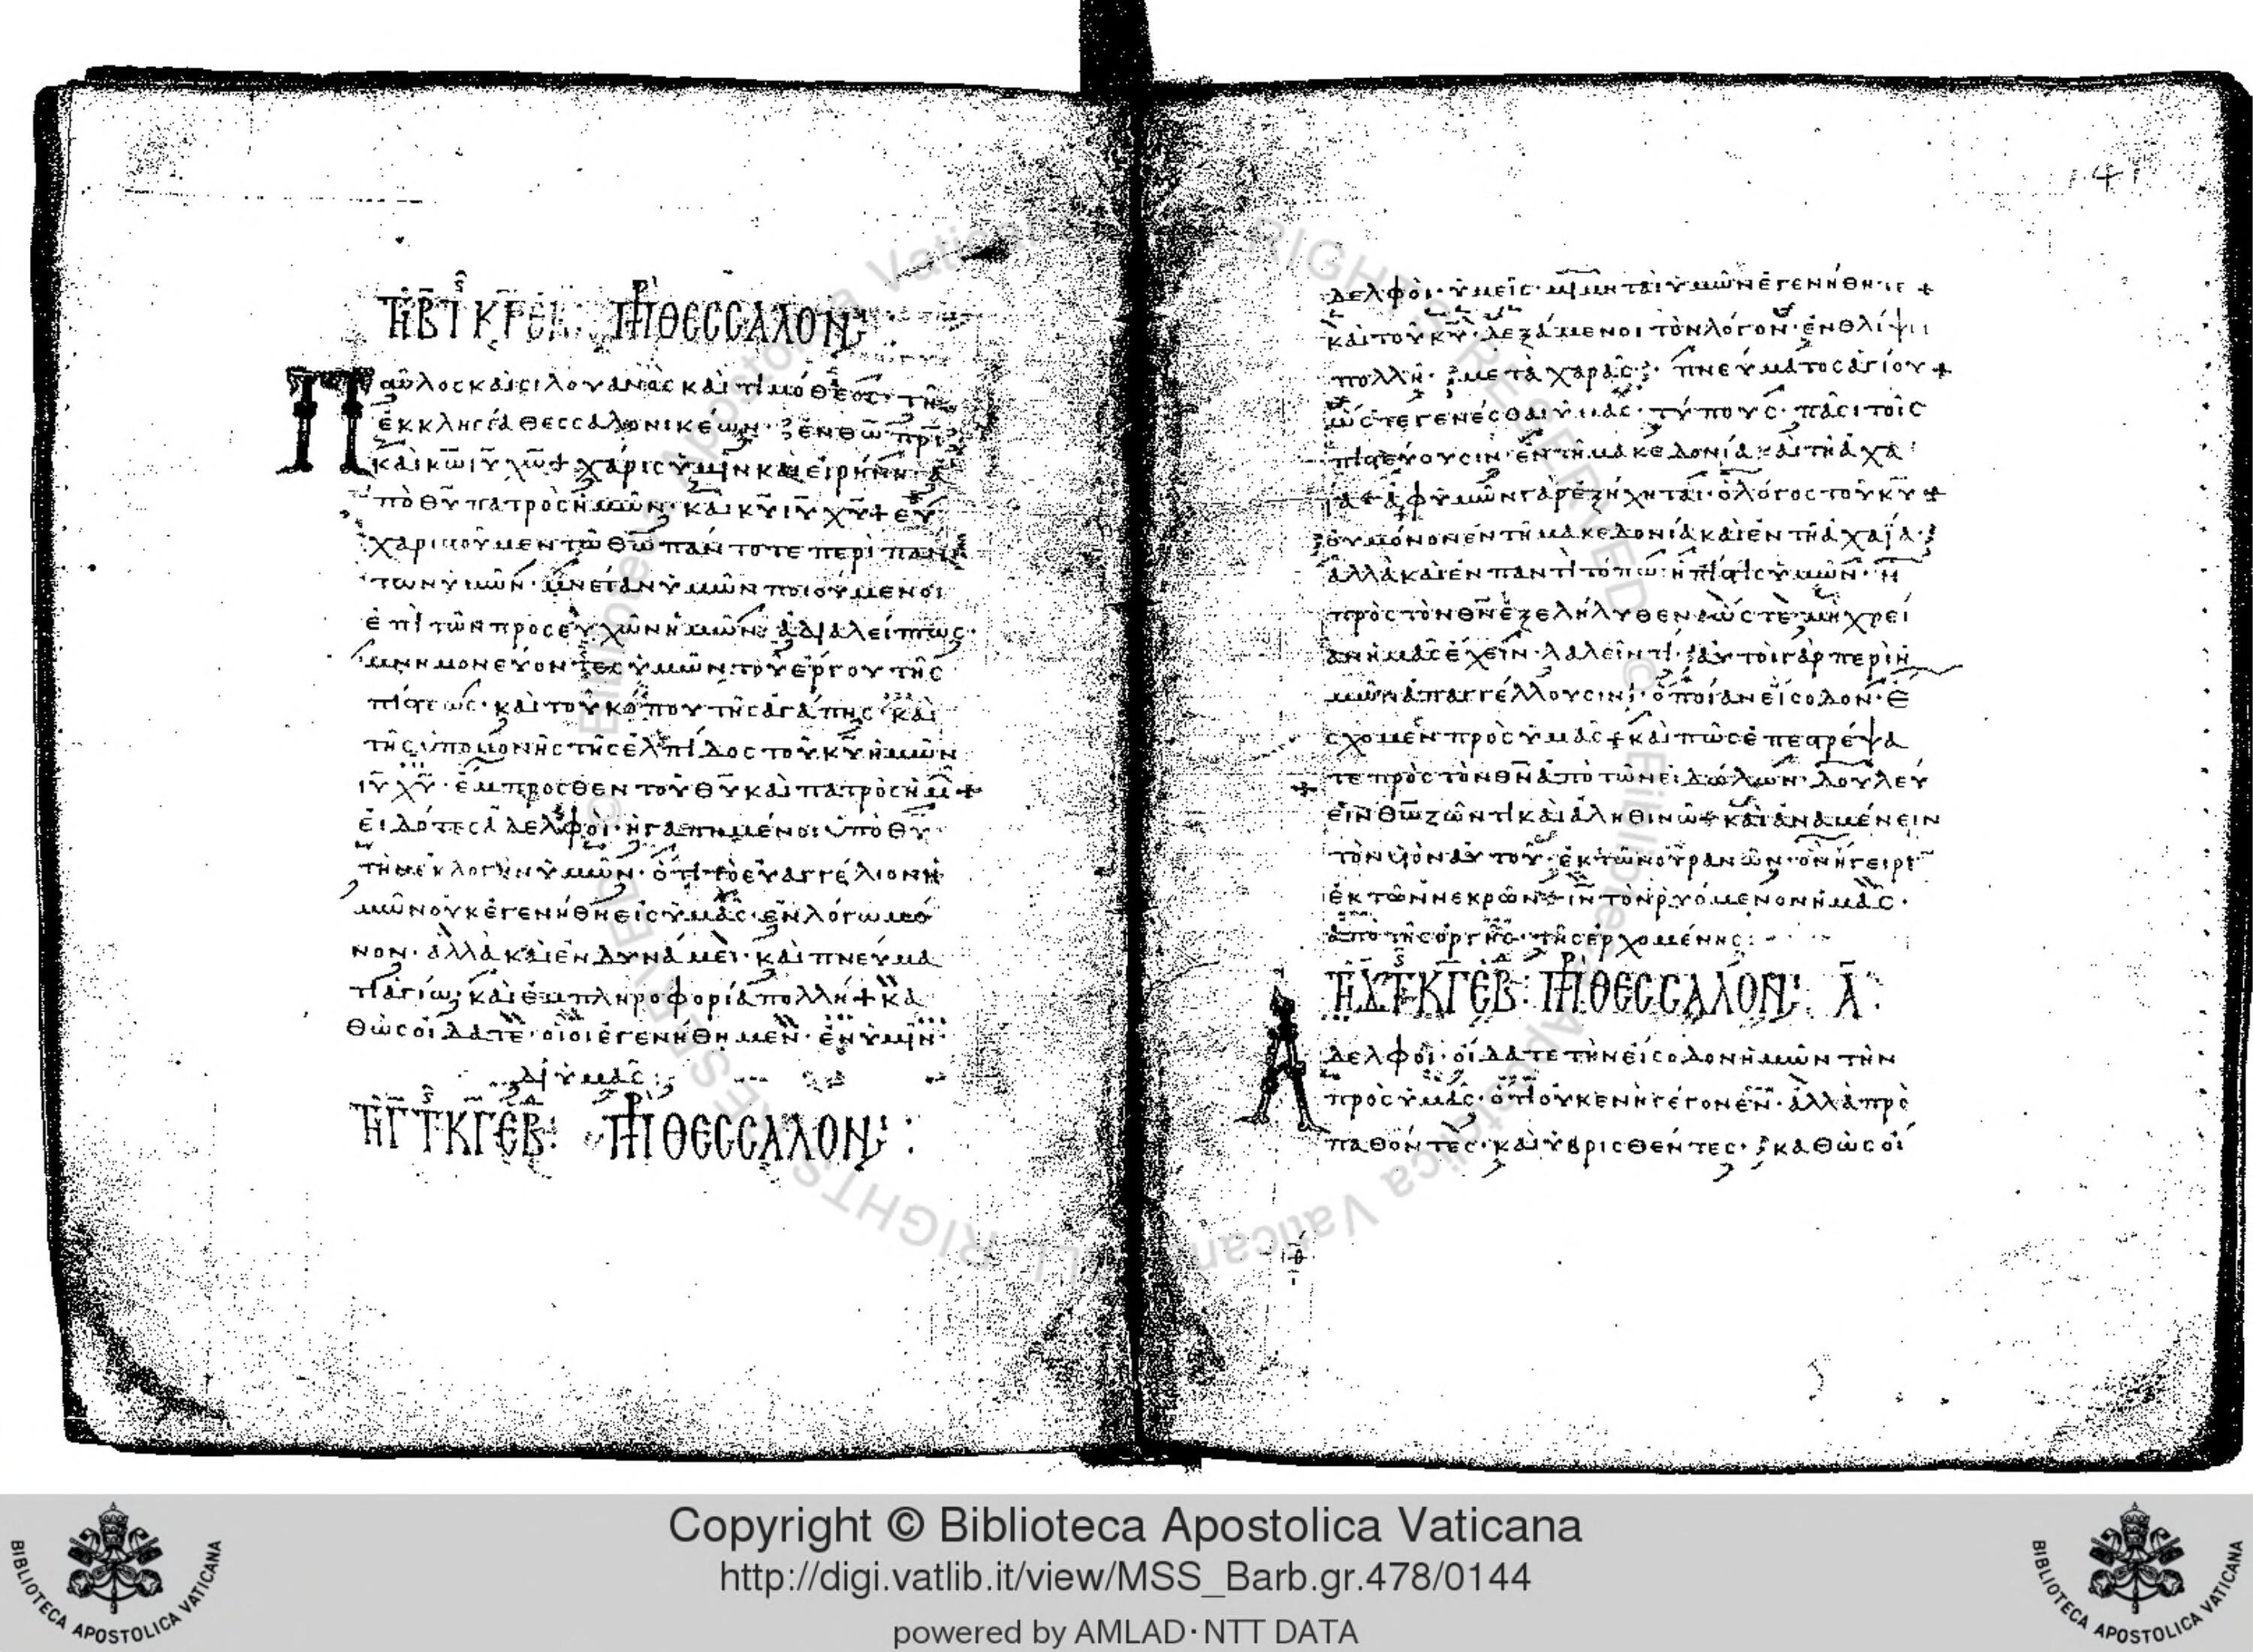 ΤΗ Β Τ ΚϚ ΕΒ : ΠΡ ΘΕССΑΛΟΝ :
Παῦλος καὶ σιλουανὸς καὶ τιμόθεος· τῆ
ἐκκλησία θεσσαλονικέων· ἐν θω πρι
καὶ κω ιυ χω + χάρις ὑμῖν καὶ εἰρήνη· ἀ
πὸ θυ πατρὸς ἡμῶν· καὶ κυ ιυ χυ + εὐ
χαριστοῦμεν τῶ θω πάντοτε περὶ πάν
των ὑμῶν· μνείαν ὑμῶν ποιούμενοι
ἐπὶ τῶν προσευχῶν ἡμῶν· ἀδιαλείπτως·
μνημονεύοντες ὑμῶν τοῦ ἔργου τῆς
πίστεως· καὶ τοῦ κόπου τῆς ἀγάπης· καὶ
τῆς ὑπομονῆς τῆς ἐλπίδος τοῦ κυ ἡμῶν
ιυ χυ· ἔμπροσθεν τοῦ θυ καὶ πατρὸς ἡμ +
εἰδότες ἀδελφοὶ· ἠγαπημένοι ὑπὸ θυ·
τὴν ἐκλογὴν ὑμῶν· ὅτι τὸ εὐαγγέλιον ἡ
μῶν οὐκ ἐγενήθη εἰς ὑμᾶς· ἐν λόγω μό
νον· ἀλλὰ καὶ ἐν δυνάμει· καὶ πνεύμα
τι ἁγίω· καὶ ἐν πληροφορία πολλῆ + κα
θὼς οἴδατε· οἷοι ἐγενήθημεν· ἐν ὑμῖν·
δι ὑμᾶς :
ΤΗ Γ Τ ΚϚ ΕΒ : ΠΡ ΘΕССΑΛΟΝ :
δελφοὶ· ὑμεῖς· μιμηταὶ ὑμῶν ἐγενήθητε +
καὶ τοῦ κυ· δεξάμενοι τὸν λόγον· ἐν θλίψει
πολλῆ· μετὰ χαρᾶς· πνεύματος ἁγίου +
ὥστε γενέσθαι ὑμᾶς· τύπους· πᾶσι τοῖς
πιστεύουσιν· ἐν τῆ μακεδονία καὶ τῆ ἀχα
ια + ἀφ ὑμῶν γὰρ ἐξήχηται· ὁ λόγος τοῦ κυ +
οὐ μόνον ἐν τῆ μακεδονία καὶ ἐν τῆ ἀχαΐα·
ἀλλὰ καὶ ἐν παντὶ τόπω· ἡ πίστις ὑμῶν· ἡ
πρὸς τὸν θν ἐξελήλυθεν· ὥστε· μὴ χρεί
αν ἡμᾶς ἔχειν· λαλεῖν τί· αὐτοὶ γὰρ περὶ ἡ
μῶν ἀπαγγέλλουσιν· ὁποίαν εἴσοδον· ἔ
σχομεν πρὸς ὑμᾶς + καὶ πῶς ἐπεστρέψα
τε πρὸς τὸν θν ἀπὸ τῶν εἰδώλων· δουλεύ
ειν θω ζῶντι καὶ ἀληθινῶ + καὶ ἀναμένειν
τὸν υἱὸν αὐτοῦ· ἐκ τῶν οὐρανῶν· ὃν ἤγειρε
ἐκ τῶν νεκρῶν + ιν τὸν ῥυόμενον ἡμᾶς·
ἀπὸ τῆς ὀργῆς· τῆς ἐρχομένης :
ΤΗ Δ Τ ΚϚ ΕΒ : ΠΡ ΘΕССΑΛΟΝ : Α :
Αδελφοι· οἴδατε τὴν εἴσοδον ἡμῶν τὴν
πρὸς ὑμᾶς· ὅτι οὐ κενὴ γέγονεν· ἀλλὰ προ
παθόντες· καὶ ὑβρισθέντες· καθὼς οἴ
Copyright © Biblioteca Apostolica Vaticana
http://digi.vatlib.it/view/MSS_Barb.gr.478/0144
powered by AMLAD·NTT DATA
BIBLIOTECA APOSTOLICA VATICANA
BIBLIOTECA APOSTOLICA VATICANA